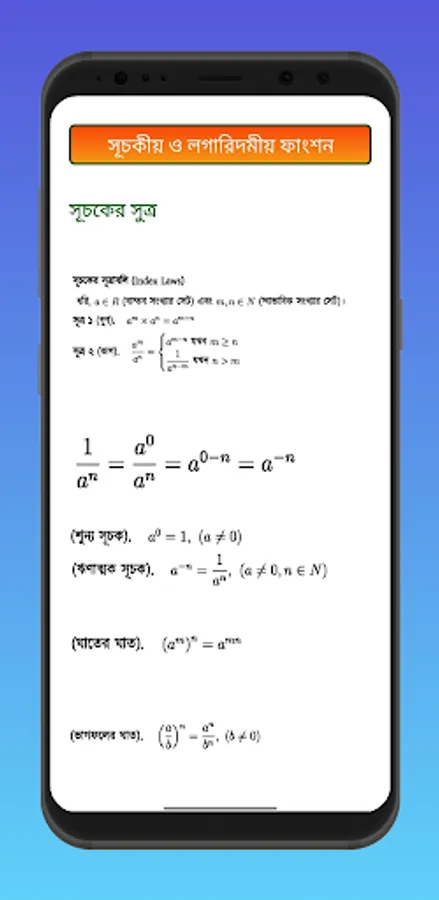 সূচকীয় ও লগারিদমীয় ফাংশন
সূচকের সুত্র
সূচকের সূত্রাবলি (Index Laws)
ধরি, a ∈ R (বাস্তব সংখ্যার সেট) এবং m, n ∈ N (স্বাভাবিক সংখ্যার সেট)।
সূত্র ১ (গুণ). a^m × a^n = a^{m+n}
সূত্র ২ (ভাগ). a^m/a^n = { a^{m-n} যখন m ≥ n
1/a^{n-m} যখন n > m
1/a^n = a^0/a^n = a^{0-n} = a^{-n}
(শূন্য সূচক). a^0 = 1, (a ≠ 0)
(ঋণাত্মক সূচক). a^{-n} = 1/a^n, (a ≠ 0, n ∈ N)
(ঘাতের ঘাত). (a^m)^n = a^{mn}
(ভাগফলের ঘাত). (a/b)^n = a^n/b^n, (b ≠ 0)